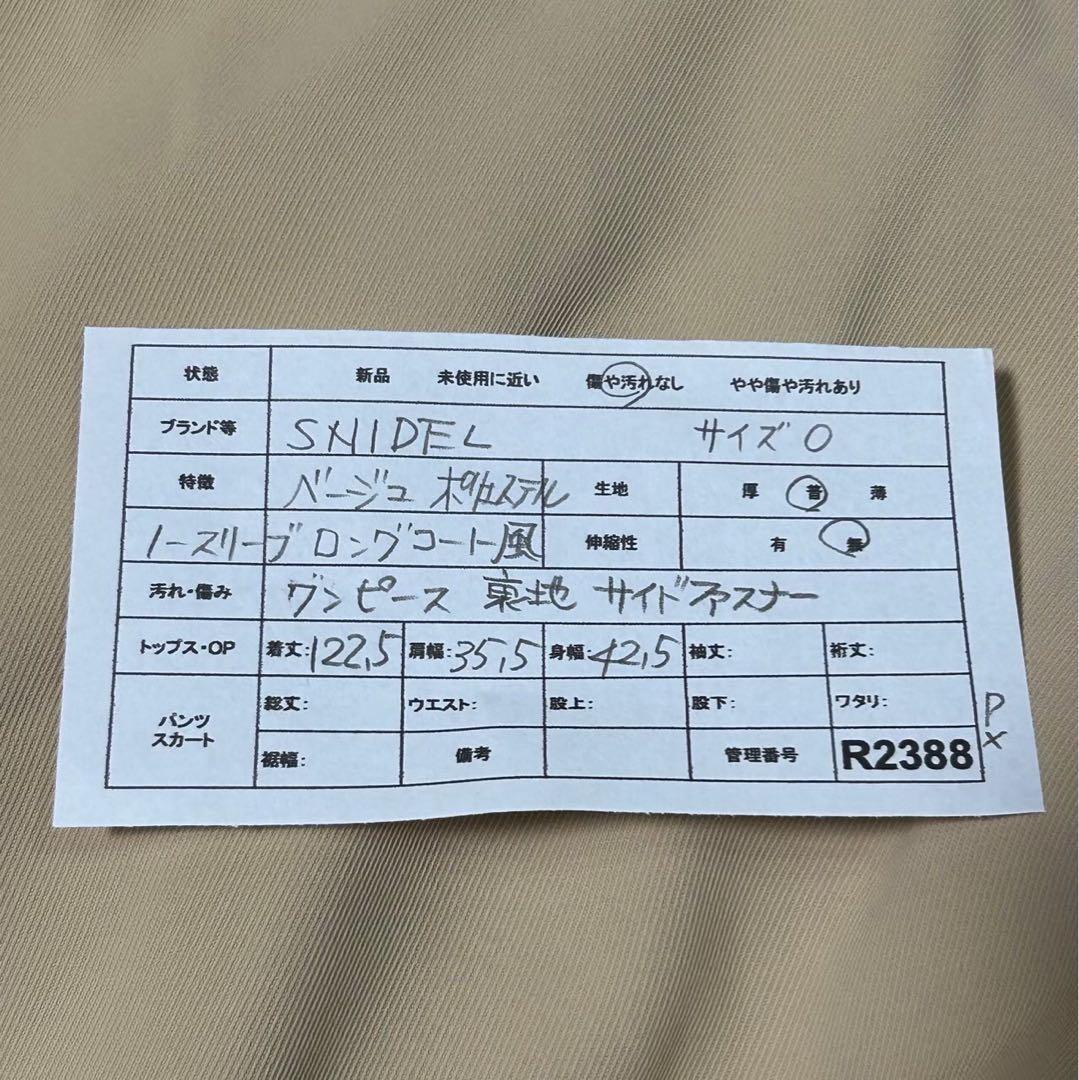 状態 新品 未使用に近い 傷や汚れなし やや傷や汚れあり
ブランド等 SNIDEL サイズ 0
特徴 ベージュ ポリエステル 生地 厚 普 薄
ノースリーブ ロングコート風 伸縮性 有 無
汚れ・傷み ワンピース 裏地 サイドファスナー
トップス・OP 着丈:122,5 肩幅:35,5 身幅:42,5 袖丈: 裄丈:
パンツ スカート 総丈: ウエスト: 股上: 股下: ワタリ:
裾幅: 備考 管理番号 R2388
P
×